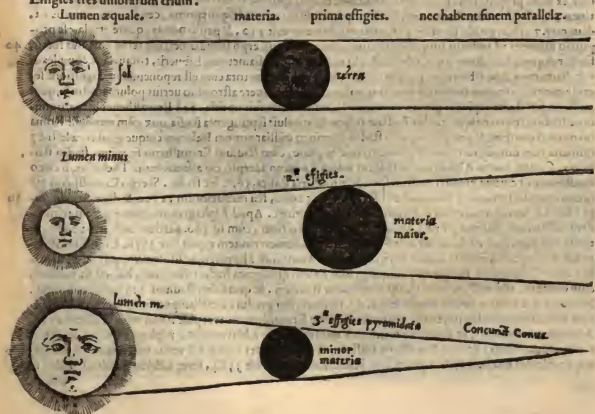 Effigies tres umbrarum trium.
Lumen æquale. materia. prima effigies. nec habent finem parallelæ.
sol terra
Lumen minus
2.ª effigies.
materia
maior.
lumen m.
3.ª effigies pyromidata
minor
materia